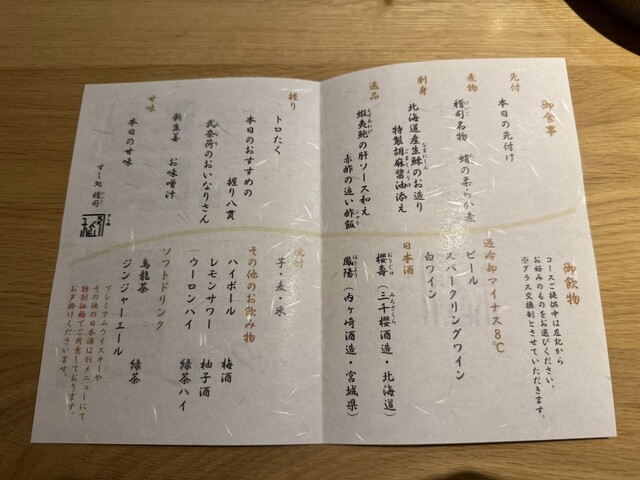 御食事
先付
本日の先付け
煮物
稽司名物 蛸の柔らか煮
刺身
北海道産生鰊のお造り
特製胡麻醤油添え
逸品
蝦夷鮑の肝ソース和え
赤酢の追い酢飯
握り
トロたく
本日のおすすめの
握り八貫
武奈荷のおいなりさん
新生姜 お味噌汁
甘味
本日の甘味
すし処 稽司
御飲物
コースご提供中は左記から
お好みのものをお選びください。
※グラス交換制とさせていただきます。
過冷却マイナス8℃
ビール
スパークリングワイン
白ワイン
日本酒
櫻壽(三千櫻酒造・北海道)
鳳陽(内ヶ崎酒造・宮城県)
焼酎
芋・麦・米
その他のお飲み物
ハイボール 梅酒
レモンサワー 柚子酒
ウーロンハイ 緑茶ハイ
ソフトドリンク
烏龍茶 緑茶
ジンジャーエール
プレミアムウイスキーや
その他の日本酒は別メニューにて
特別価格でご用意しております。
お声掛けくださいませ。